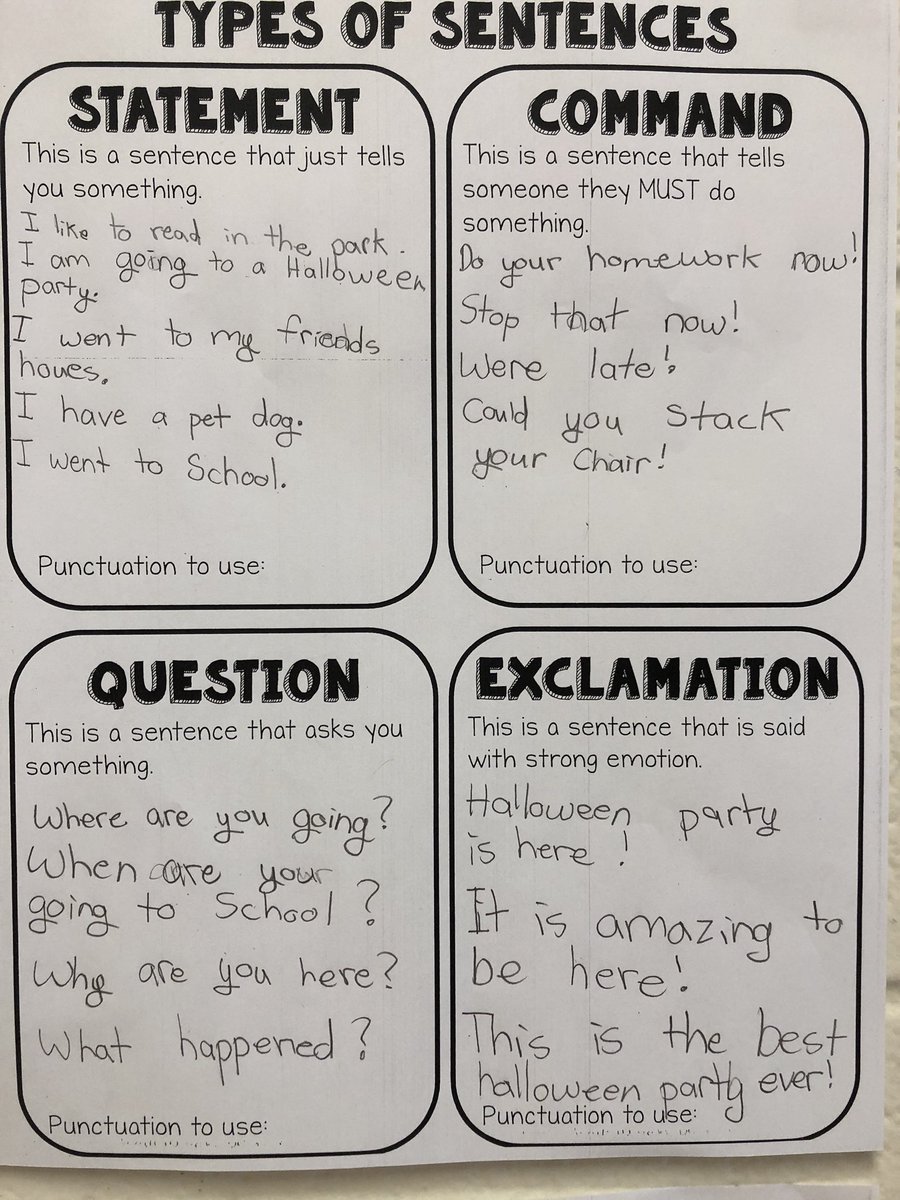 TYPES OF SENTENCES
STATEMENT
This is a sentence that just tells
you something.
I like to read in the park.
I am going to a Halloween
party.
I went to my friends
houes.
I have a pet dog.
I went to School.
Punctuation to use:
COMMAND
This is a sentence that tells
someone they MUST do
something.
Do your homework now!
Stop that now!
Were late!
Could you Stack
your Chair!
Punctuation to use:
QUESTION
This is a sentence that asks you
something.
Where are you going?
When are your
going to School?
Why are you here?
What happened?
Punctuation to use:
EXCLAMATION
This is a sentence that is said
with strong emotion.
Halloween party
is here!
It is amazing to
be here!
This is the best
halloween party ever!
Punctuation to use: